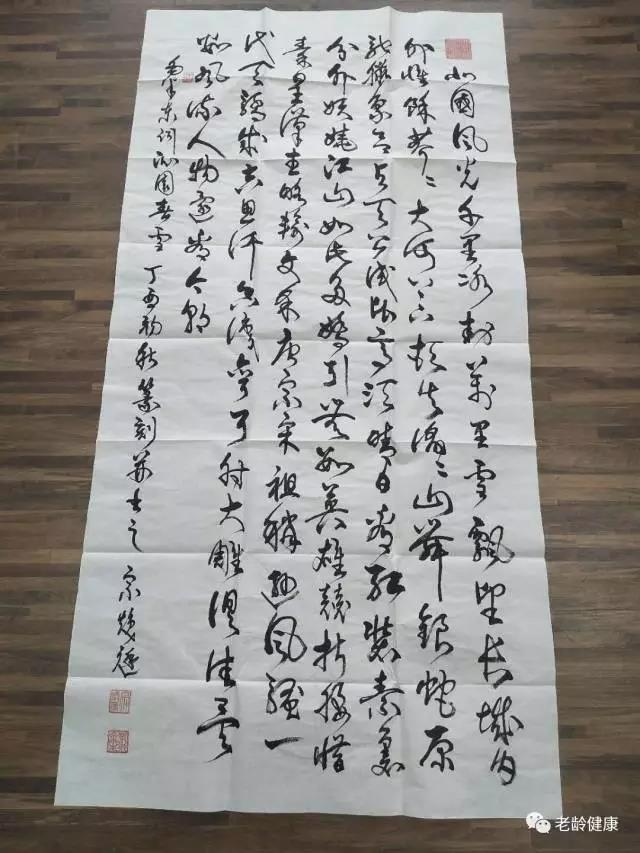 北國风光千里冰封萬里雪飘望长城内
外惟馀莽〻大河上下顿失滔〻山舞银蛇原
驰蜡象欲与天公试比高须晴日看红装素裹
分外妖娆江山如此多嬌引无数英雄競折腰惜
秦皇汉武略输文采唐宗宋祖稍逊风骚一
代天骄成吉思汗只识弯弓射大雕俱往矣
数风流人物还看今朝
毛泽东词沁园春雪 丁酉初秋篆刻并书之
老龄健康